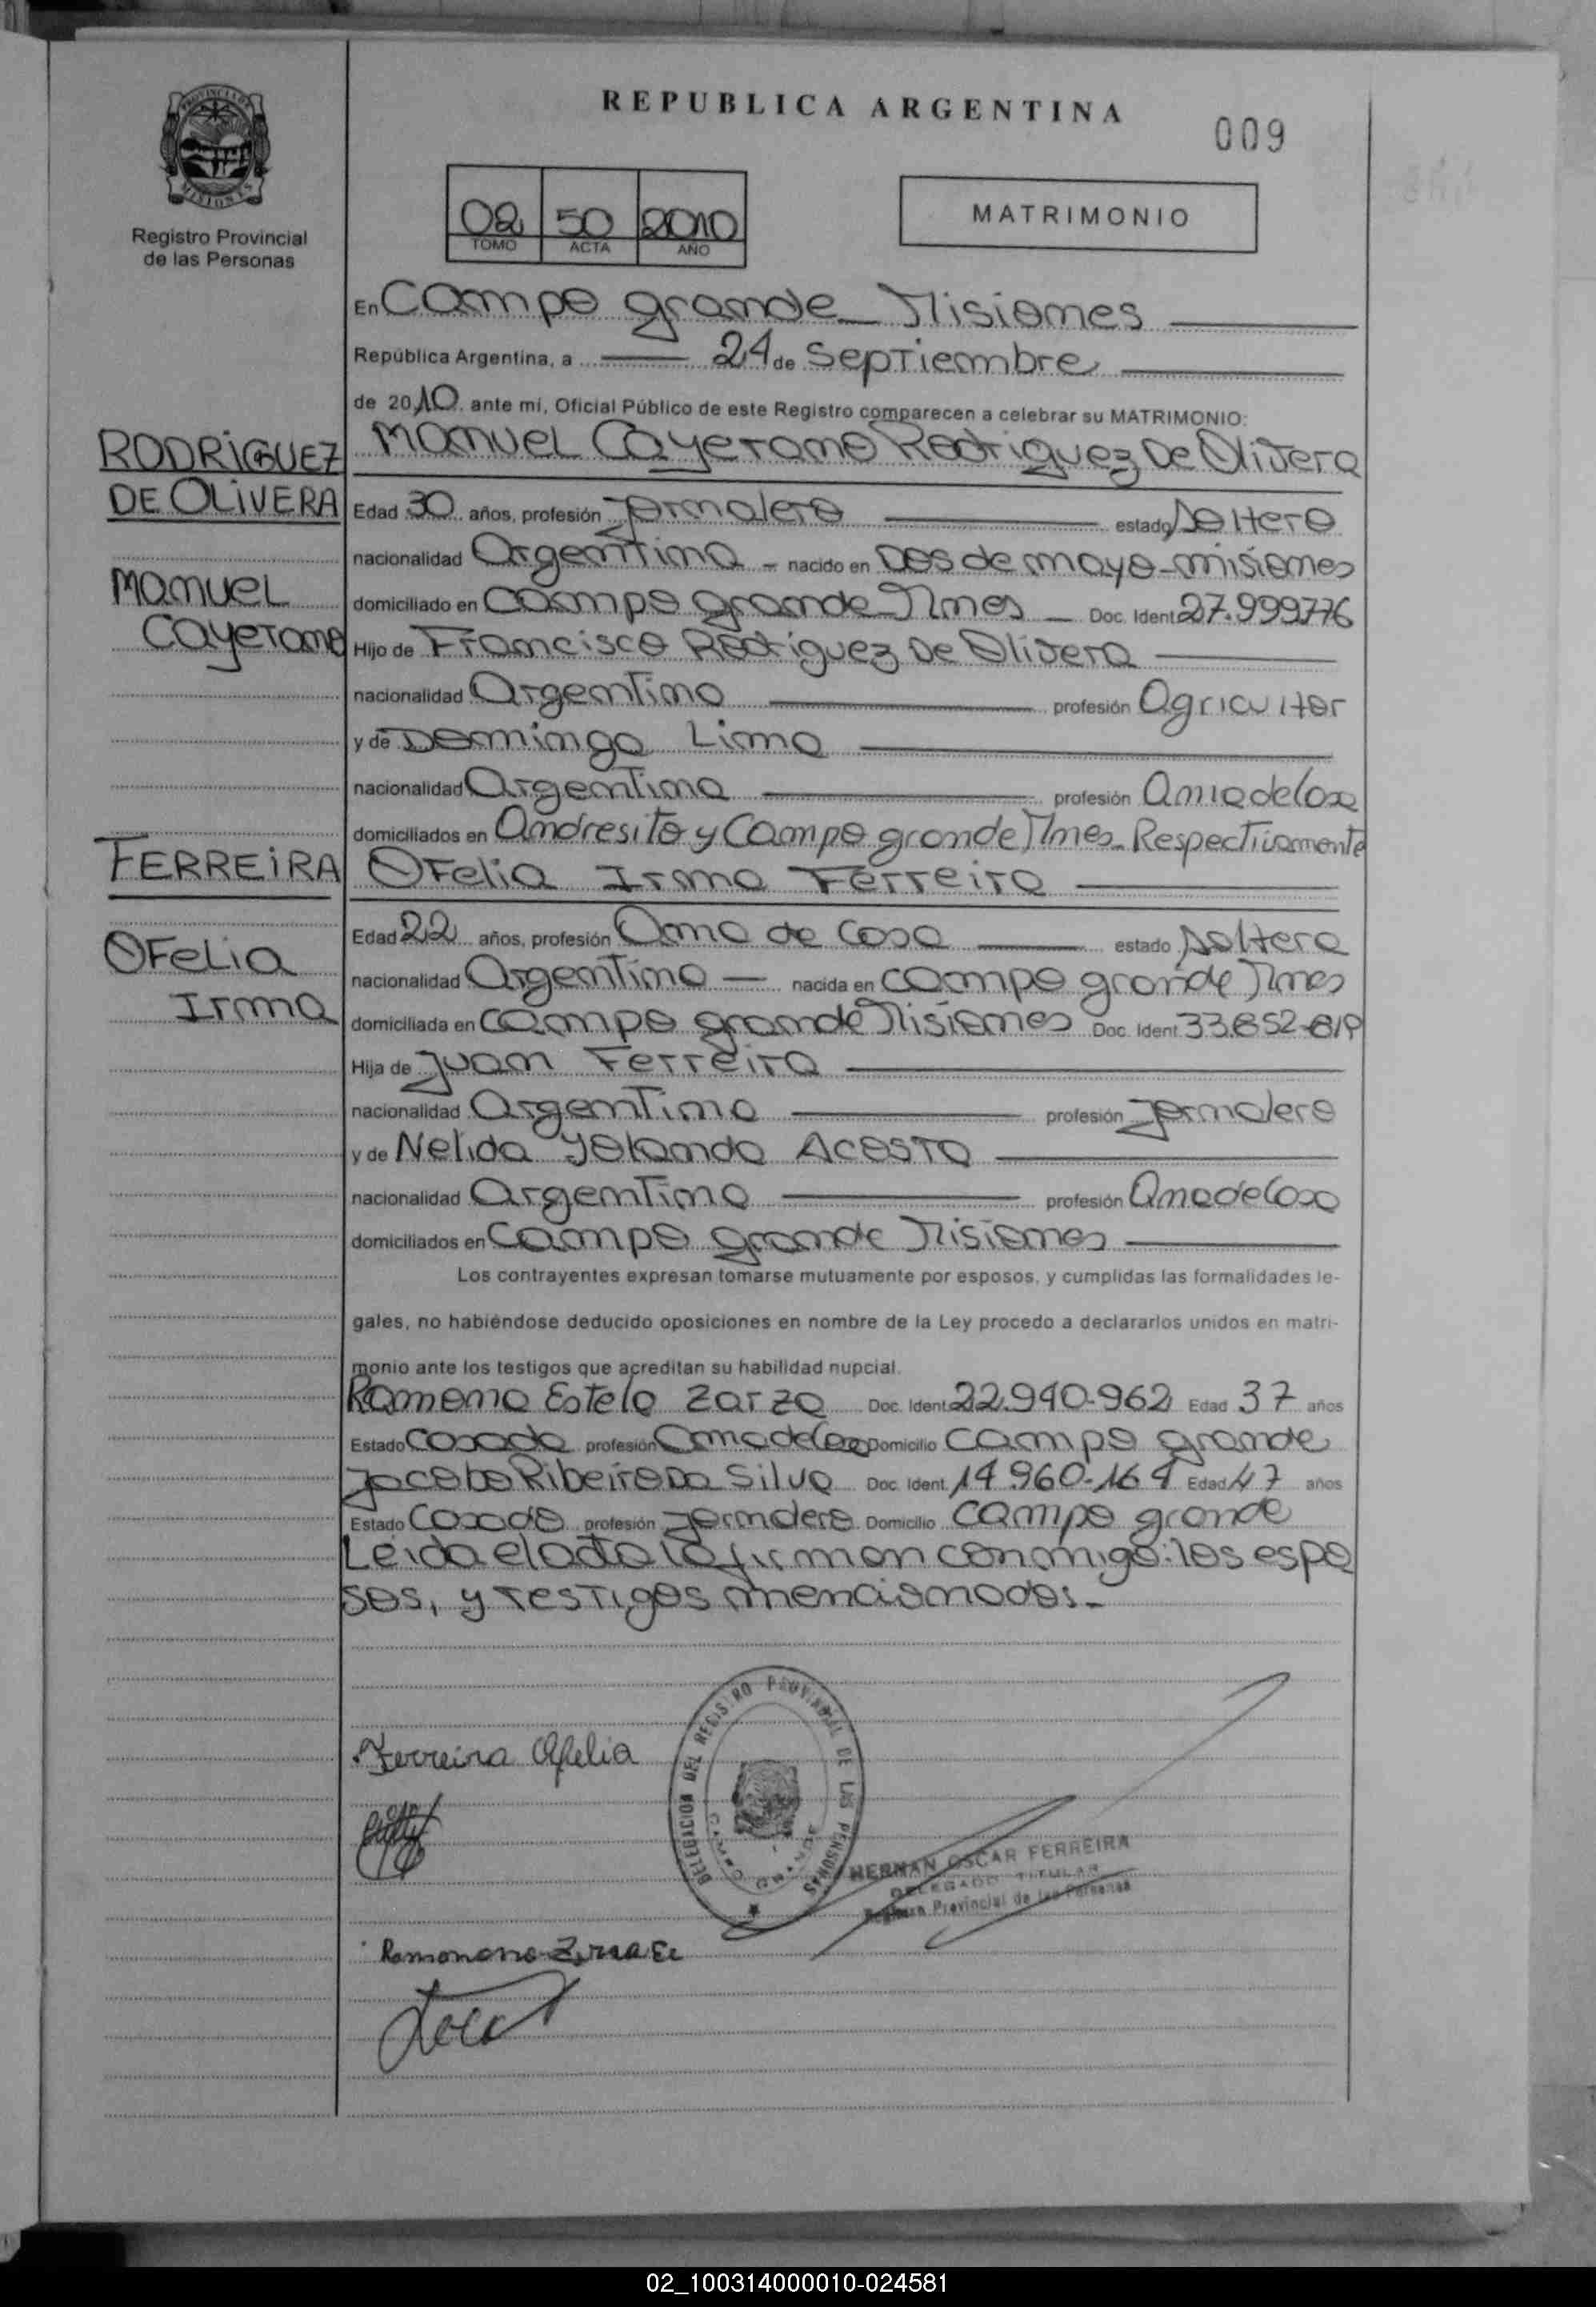 REPUBLICA ARGENTINA
009
PROVINCIA DE
MISIONES
Registro Provincial
de las Personas
02 50 2010
TOMO ACTA AÑO
MATRIMONIO
En Campo grande Misiones
República Argentina, a 24 de Septiembre
de 2010 ante mi, Oficial Público de este Registro comparecen a celebrar su MATRIMONIO:
RODRIGUEZ
DE OLIVERA
Manuel
Cayetano
Manuel Cayetano Rodriguez De Olivera
Edad 30 años, profesión Jornalero estado Soltero
nacionalidad Argentina - nacido en Dos de mayo - misiones
domiciliado en Campo grande Mnes Doc. Ident 27.999776
Hijo de Francisco Rodriguez De Olivera
nacionalidad Argentina profesión Agricultor
y de Dominga Lima
nacionalidad Argentina profesión Ama de Casa
domiciliados en Andresito y Campo grande Mnes. Respectivamente
FERREIRA
OFelia
Irma
OFelia Irma Ferreira
Edad 22 años, profesión Ama de Casa estado Soltera
nacionalidad Argentina nacida en Campo grande Mnes
domiciliada en Campo grande Misiones Doc. Ident. 33.852-819
Hija de Juan Ferreira
nacionalidad Argentina profesión Jornalero
y de Nelida Yolanda Acosta
nacionalidad Argentina profesión Ama de Casa
domiciliados en Campo grande Misiones
Los contrayentes expresan tomarse mutuamente por esposos, y cumplidas las formalidades le-
gales, no habiéndose deducido oposiciones en nombre de la Ley procedo a declararlos unidos en matri-
monio ante los testigos que acreditan su habilidad nupcial.
Ramona Estela Zarza Doc. Ident. 22.940-962 Edad 37 años
Estado Casada profesión Ama de Casa Domicilio Campo grande
Jacobo Ribeiro Da Silva Doc. Ident. 14.960-164 Edad 47 años
Estado Casado profesión Jornalero Domicilio Campo grande
Leida el acta la firman conmigo: los espo
sos, y testigos mencionados.-
Ferreira Ofelia
DELEGACION DEL REGISTRO PROVINCIAL DE LAS PERSONAS
HERNAN OSCAR FERREIRA
DELEGADO TITULAR
Registro Provincial de las Personas
02_100314000010-024581